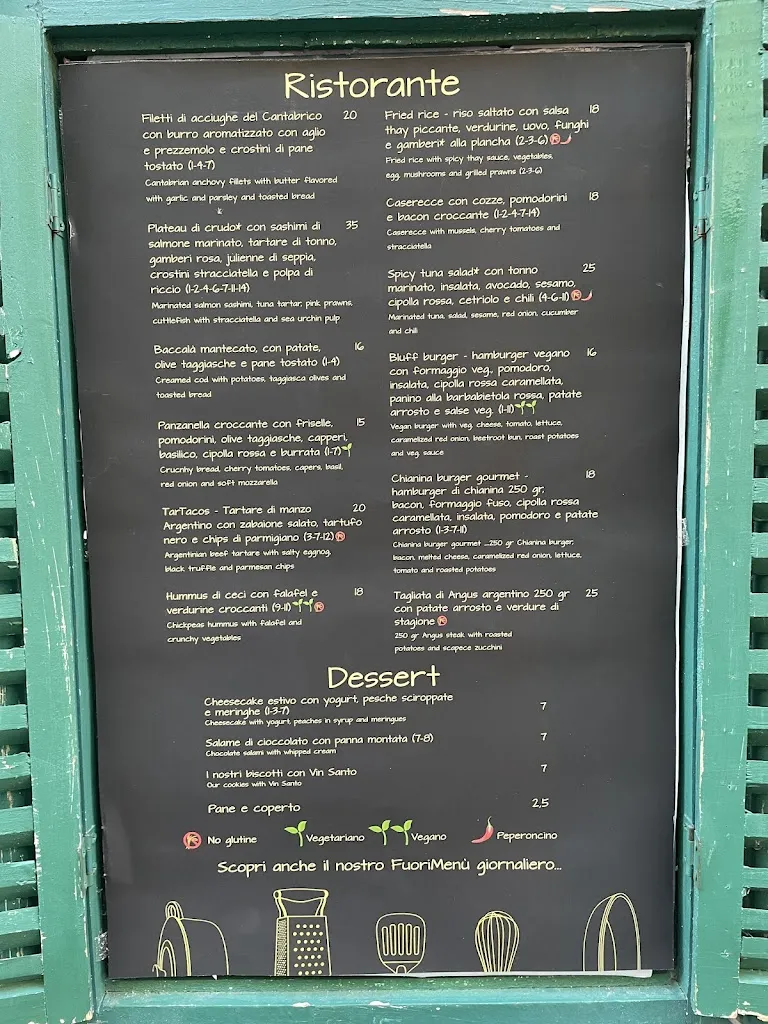 Ristorante
Filetti di acciughe del Cantabrico 20
con burro aromatizzato con aglio
e prezzemolo e crostini di pane
tostato (1-4-7)
Cantabrian anchovy fillets with butter flavored
with garlic and parsley and toasted bread
Plateau di crudo* con sashimi di 35
salmone marinato, tartare di tonno,
gamberi rosa, julienne di seppia,
crostini stracciatella e polpa di
riccio (1-2-4-6-7-11-14)
Marinated salmon sashimi, tuna tartar, pink prawns,
cuttlefish with stracciatella and sea urchin pulp
Baccalà mantecato, con patate, 16
olive taggiasche e pane tostato (1-4)
Creamed cod with potatoes, taggiasca olives and
toasted bread
Panzanella croccante con friselle, 15
pomodorini, olive taggiasche, capperi,
basilico, cipolla rossa e burrata (1-7)
Crucnhy bread, cherry tomatoes, capers, basil,
red onion and soft mozzarella
TarTacos - Tartare di manzo 20
Argentino con zabaione salato, tartufo
nero e chips di parmigiano (3-7-12)
Argentinian beef tartare with salty eggnog,
black truffle and parmesan chips
Hummus di ceci con falafel e 18
verdurine croccanti (9-11)
Chickpeas hummus with falafel and
crunchy vegetables
Fried rice - riso saltato con salsa 18
thay piccante, verdurine, uovo, funghi
e gamberi* alla plancha (2-3-6)
Fried rice with spicy thay sauce, vegetables,
egg, mushrooms and grilled prawns (2-3-6)
Caserecce con cozze, pomodorini 18
e bacon croccante (1-2-4-7-14)
Caserecce with mussels, cherry tomatoes and
stracciatella
Spicy tuna salad* con tonno 25
marinato, insalata, avocado, sesamo,
cipolla rossa, cetriolo e chili (4-6-11)
Marinated tuna, salad, sesame, red onion, cucumber
and chili
Bluff burger - hamburger vegano 16
con formaggio veg., pomodoro,
insalata, cipolla rossa caramellata,
panino alla barbabietola rossa, patate
arrosto e salse veg. (1-11)
Vegan burger with veg. cheese, tomato, lettuce,
caramelized red onion, beetroot bun, roast potatoes
and veg. sauce
Chianina burger gourmet - 18
hamburger di chianina 250 gr,
bacon, formaggio fuso, cipolla rossa
caramellata, insalata, pomodoro e patate
arrosto (1-3-7-11)
Chianina burger gourmet ...250 gr Chianina burger,
bacon, melted cheese, caramelized red onion, lettuce,
tomato and roasted potatoes
Tagliata di Angus argentino 250 gr 25
con patate arrosto e verdure di
stagione
250 gr Angus steak with roasted
potatoes and scapece zucchini
Dessert
Cheesecake estivo con yogurt, pesche sciroppate
e meringhe (1-3-7) 7
Cheesecake with yogurt, peaches in syrup and meringues
Salame di cioccolato con panna montata (7-8) 7
Chocolate salami with whipped cream
I nostri biscotti con Vin Santo 7
Our cookies with Vin Santo
Pane e coperto 2,5
No glutine Vegetariano Vegano Peperoncino
Scopri anche il nostro FuoriMenù giornaliero...